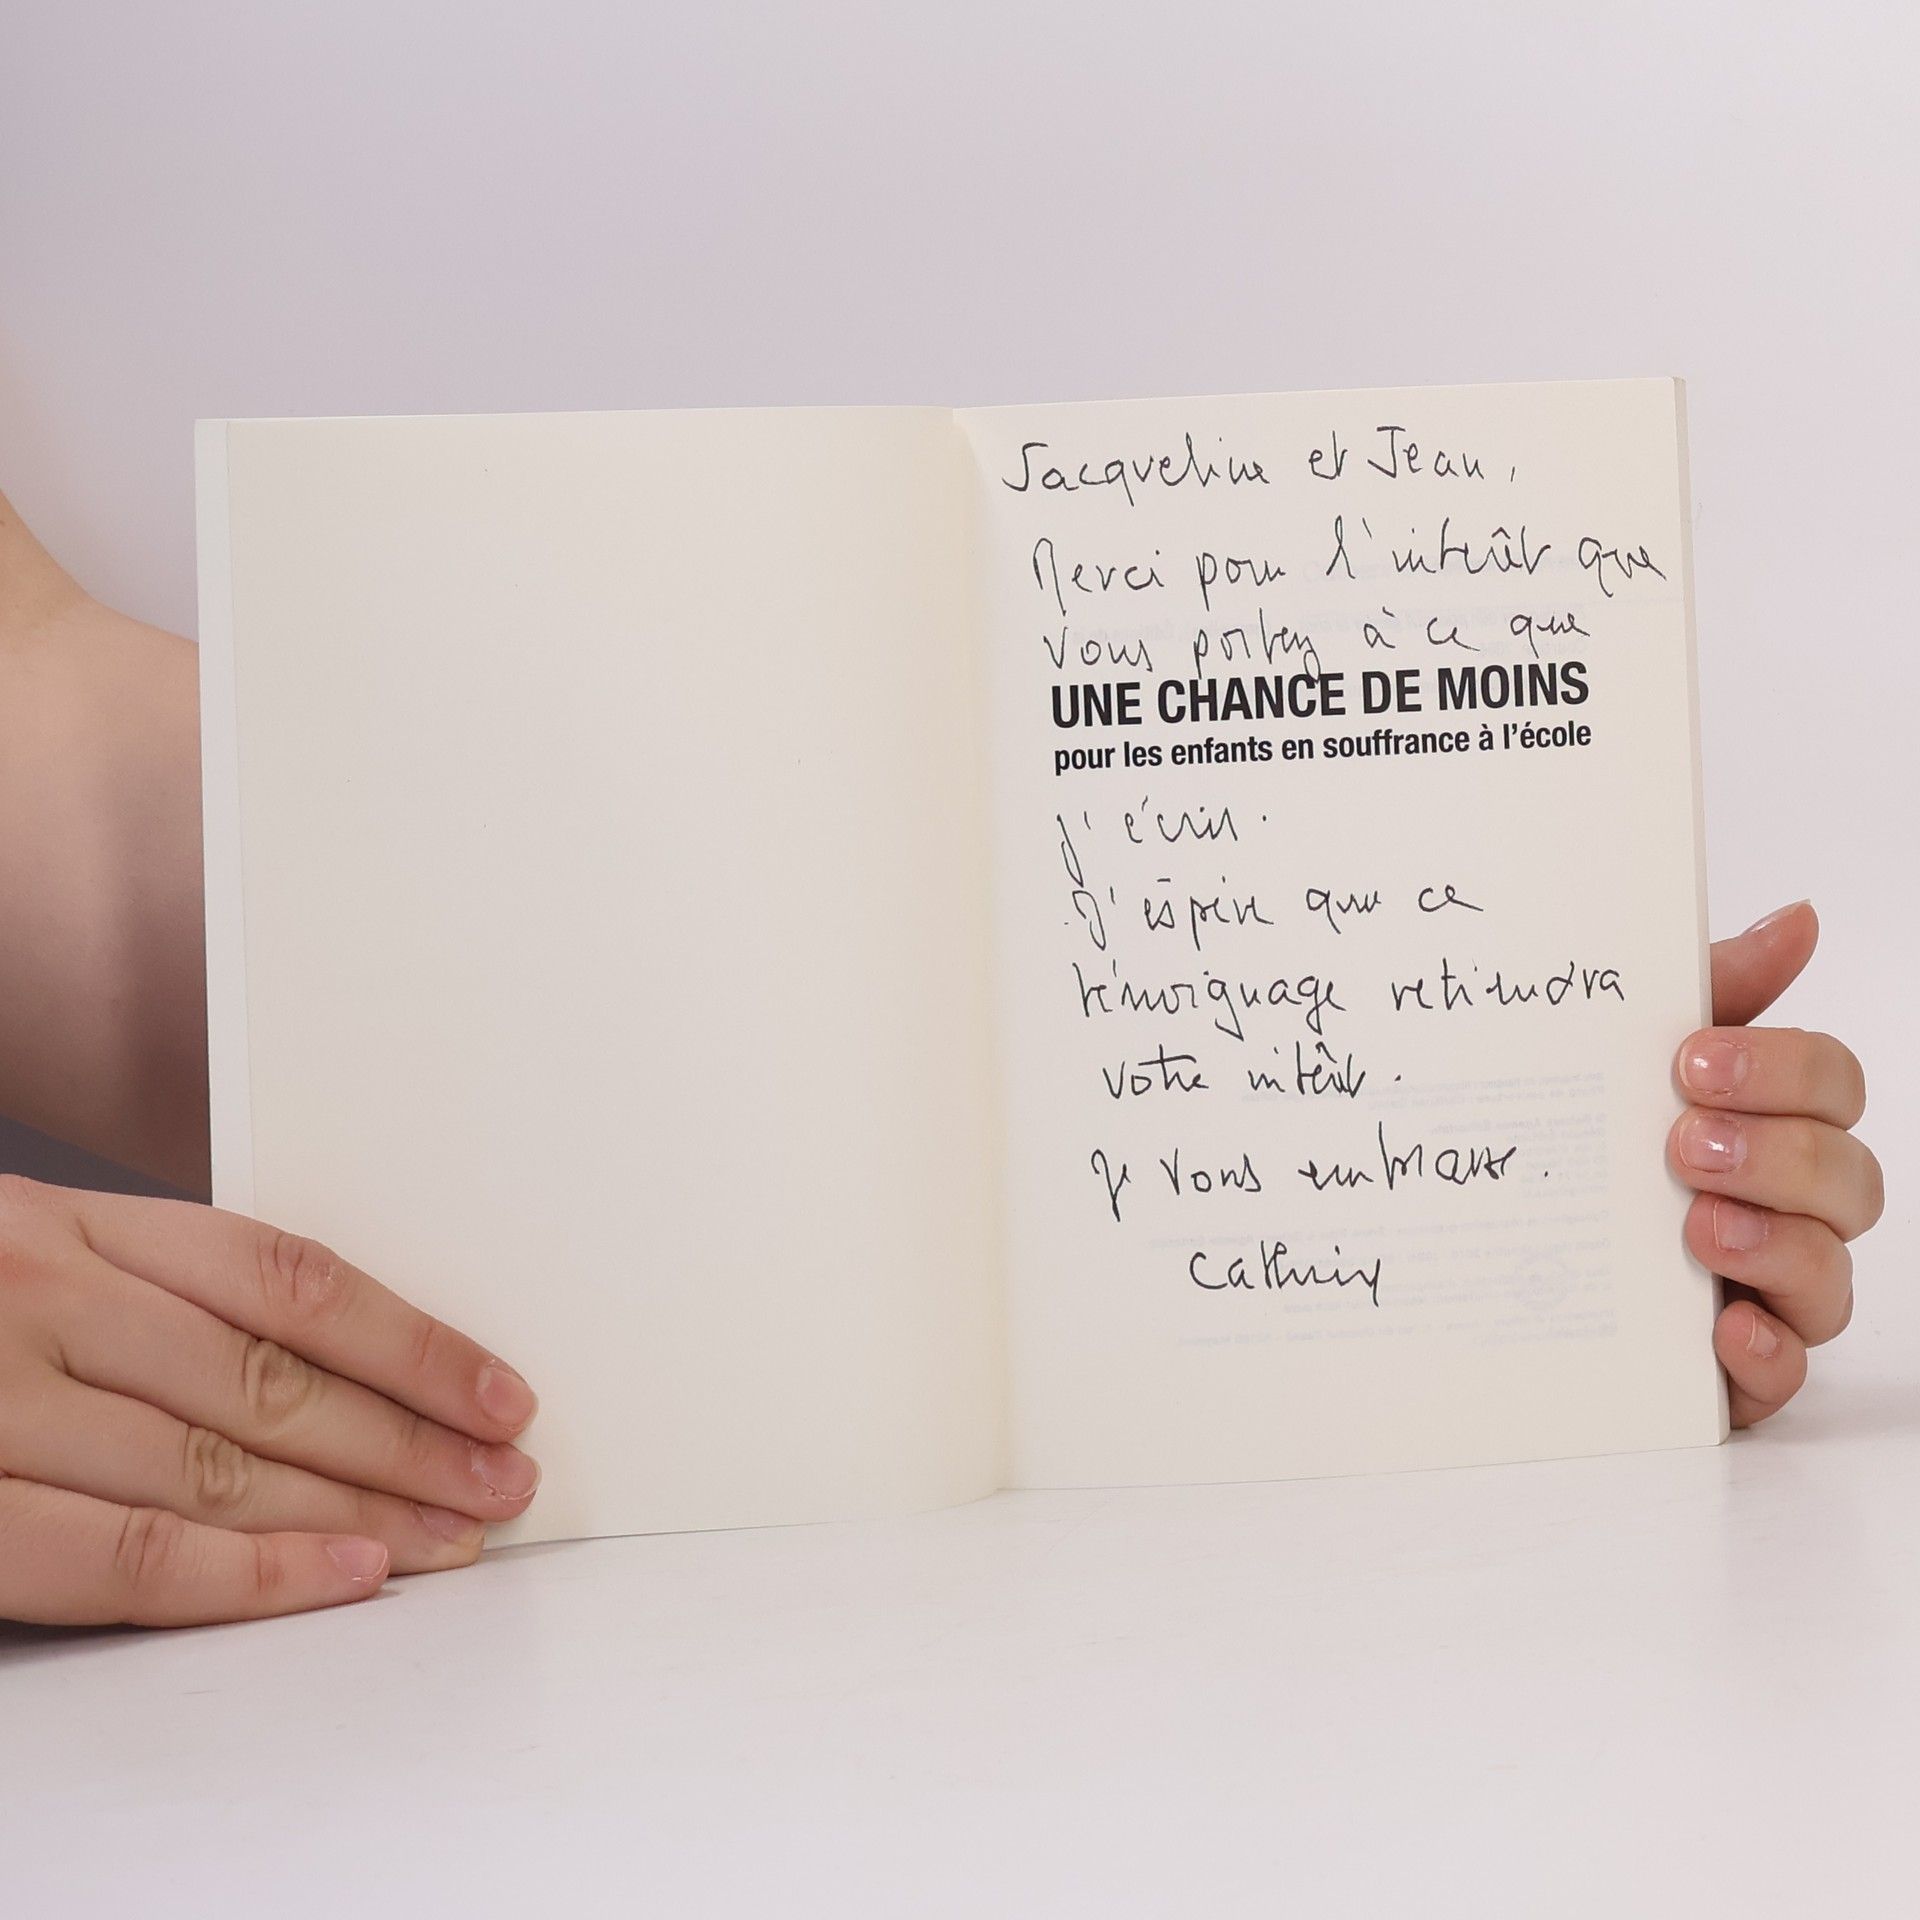 Jacqueline et Jean,
Merci pour l'intérêt que
vous portez à ce que
UNE CHANCE DE MOINS
pour les enfants en souffrance à l'école
j'écris.
J'espère que ce
témoignage retiendra
votre intérêt.
Je vous embrasse.